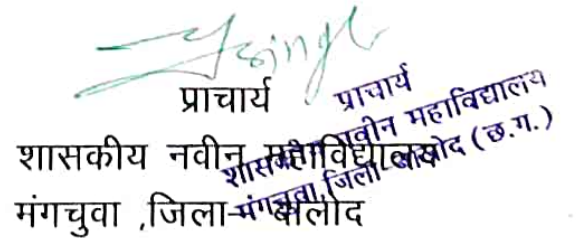 प्राचार्य
शासकीय नवीन महाविद्यालय
मंगचुवा ,जिला-बालोद
प्राचार्य
शासकीय नवीन महाविद्यालय
मंगचुवा, जिला-बालोद (छ.ग.)